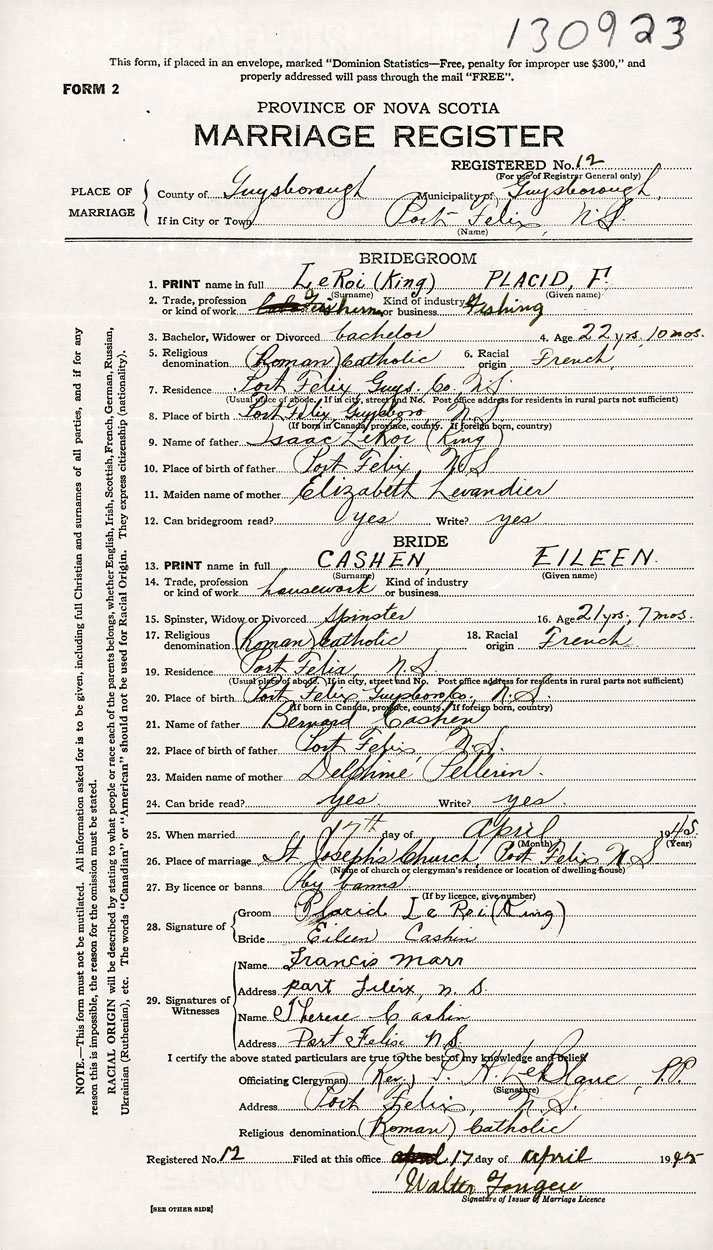 130923
This form, if placed in an envelope, marked “Dominion Statistics—Free, penalty for improper use $300,” and
properly addressed will pass through the mail “FREE”.
FORM 2
PROVINCE OF NOVA SCOTIA
MARRIAGE REGISTER
REGISTERED No. 12
(For use of Registrar General only)
PLACE OF MARRIAGE
County of Guysborough Municipality of Guysborough,
If in City or Town Port Felix, N.S.
(Name)
BRIDEGROOM
1. PRINT name in full LeRoi (King) PLACID, F.
(Surname) (Given name)
2. Trade, profession or kind of work Fisherman Kind of industry or business Fishing
3. Bachelor, Widower or Divorced bachelor 4. Age 22 yrs, 10 mos.
5. Religious denomination (Roman) Catholic 6. Racial origin French
7. Residence Port Felix Guys. Co. N.S.
(Usual place of abode. If in city, street and No. Post office address for residents in rural parts not sufficient)
8. Place of birth Port Felix Guysboro N.S
(If born in Canada, province, county. If foreign born, country)
9. Name of father Isaac LeRoi (King)
10. Place of birth of father Port Felix N.S
11. Maiden name of mother Elizabeth Levandier
12. Can bridegroom read? yes Write? yes
BRIDE
13. PRINT name in full CASHEN, EILEEN.
(Surname) (Given name)
14. Trade, profession or kind of work housework Kind of industry or business
15. Spinster, Widow or Divorced Spinster 16. Age 21 yrs, 7 mos.
17. Religious denomination (Roman) Catholic 18. Racial origin French
19. Residence Port Felix N.S.
(Usual place of abode. If in city, street and No. Post office address for residents in rural parts not sufficient)
20. Place of birth Port Felix Guysboro Co. N.S.
(If born in Canada, province, county. If foreign born, country)
21. Name of father Bernard Cashen
22. Place of birth of father Port Felix N.S.
23. Maiden name of mother Delphine Pellerin.
24. Can bride read? yes. Write? yes.
25. When married 17th day of April 1945.
(Month) (Year)
26. Place of marriage St. Joseph's Church, Port Felix N.S
(Name of church or clergyman's residence or location of dwelling-house)
27. By licence or banns by banns
(If by licence, give number)
28. Signature of
Groom Placid LeRoi (King)
Bride Eileen Cashin
29. Signatures of Witnesses
Name Francis Marr
Address port Filirx, n. S.
Name Therese Cashin
Address Port Felix NS.
I certify the above stated particulars are true to the best of my knowledge and belief
Officiating Clergyman (Rev.) P. H. LeBlanc, P.P.
(Signature)
Address Port Felix, N.S.
Religious denomination (Roman) Catholic
Registered No. 12 Filed at this office 17 day of april 1945
Walter
Signature of Issuer of Marriage Licence
[SEE OTHER SIDE]
NOTE.—This form must not be mutilated. All information asked for is to be given, including full Christian and surnames of all parties, and if for any
reason this is impossible, the reason for the omission must be stated.
RACIAL ORIGIN will be described by stating to what people or race each of the parents belongs, whether English, Irish, Scottish, French, German, Russian,
Ukrainian (Ruthenian), etc. The words “Canadian” or “American” should not be used for Racial Origin. They express citizenship (nationality).